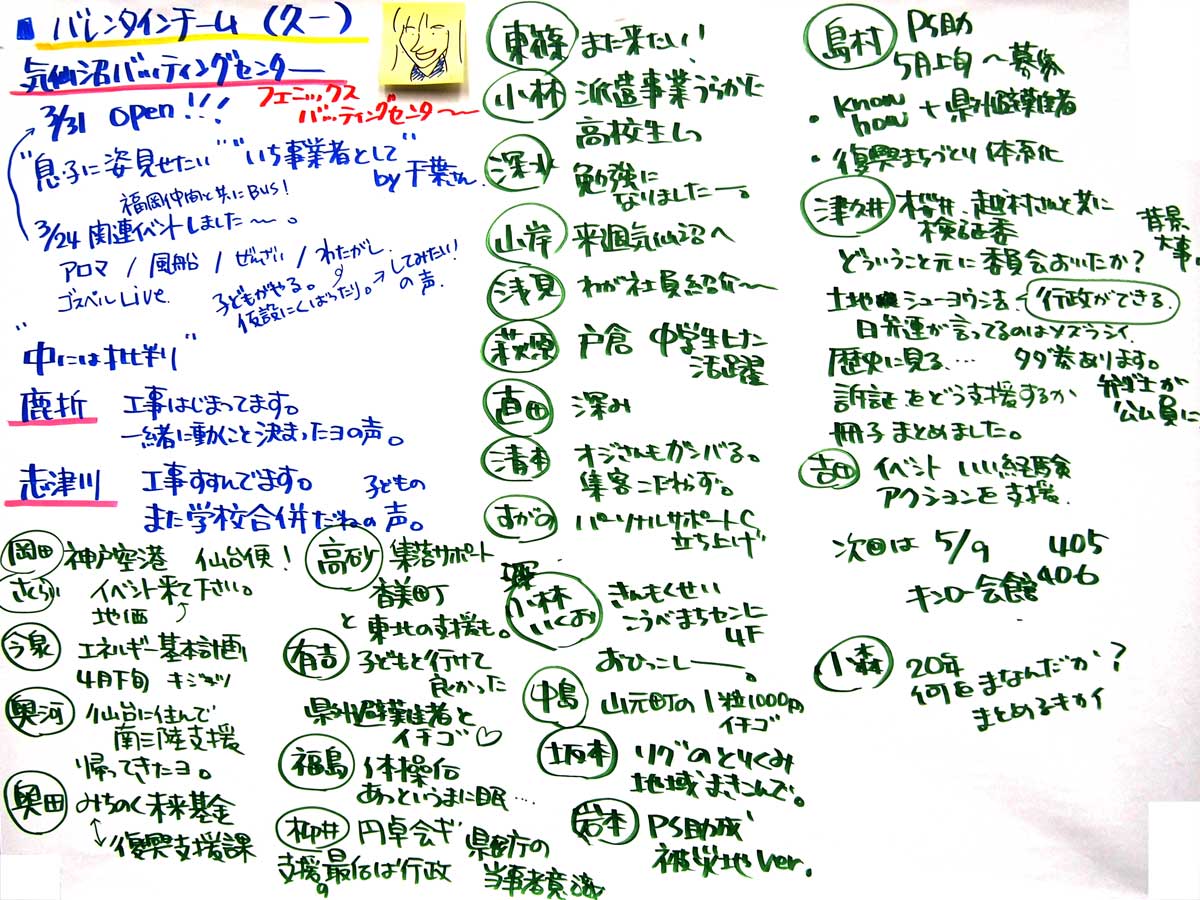 ■ バレンタインチーム(久一)
気仙沼バッティングセンター
3/31 open!!!
フェニックス
バッティングセンター〜
"息子に姿見せたい" "いち事業者として"
by 千葉さん.
福岡仲間と共にBUS!
3/24 関連イベントしました〜。
アロマ / 風船 / ぜんざい / わたがし.
ゴスペルLive.
子どもがやる。
仮設にくばったり。
してみたい!
の声.
"中には批判"
鹿折 工事はじまってます。
一緒に動くこと決まったヨの声。
志津川 工事すすんでます。
子どもの
また学校合併だねの声。
岡田 神戸空港 仙台便!
さくらい イベント来て下さい。
地価
今泉 エネルギー基本計画
4月下旬
奥河 仙台に住んで
南三陸支援
帰ってきたヨ。
奥田 みちのく未来基金
復興支援課
高砂 集落サポート
香美町
と東北の支援も。
有吉 子どもと行けて
良かった
県外避難者と
イチゴ♡
福島 体操伝
あっというまに眠…
柳井 円卓会ギ 県庁の
支援の最后は行政 当事者意識
東篠 また来たい!
小林 派遣事業うらかた
高校生し
深水 勉強に
なりましたー。
山岸 来週気仙沼へ
浅見 わが社員紹介〜
萩原 戸倉 中学生ヒナン
活躍
直田 深み
清本 オジさんもガンバる。
集客こだわらず。
すがの パーソナルサポートC
立ち上げ
小林いくお きんもくせい
こうべまちセンに
4F
おひっこしー。
中島 山元町の1粒1000円
イチゴ
坂本 リグのとりくみ
地域まきこんで。
岩本 PS助成
被災地ver.
島村 PS助
5月上旬〜募集
・know how + 県外避難者
・復興まちづくり体系化
津久井 桜井、越村さんと共に
検証委
背景
大事
どういうこと元に委員会おいたか?
土地シューヨウ法-行政ができる.
日弁連が言ってるのはメズラシイ.
歴史に見る… タダ券あります。
訴証をどう支援するか
弁ゴ士が
公ム員に
冊子まとめました。
吉田 イベント いい経験
アクションを支援.
次回は 5/9 405
406
キンロー会館
小森 20年
何をまなんだか?
まとめるキカイ